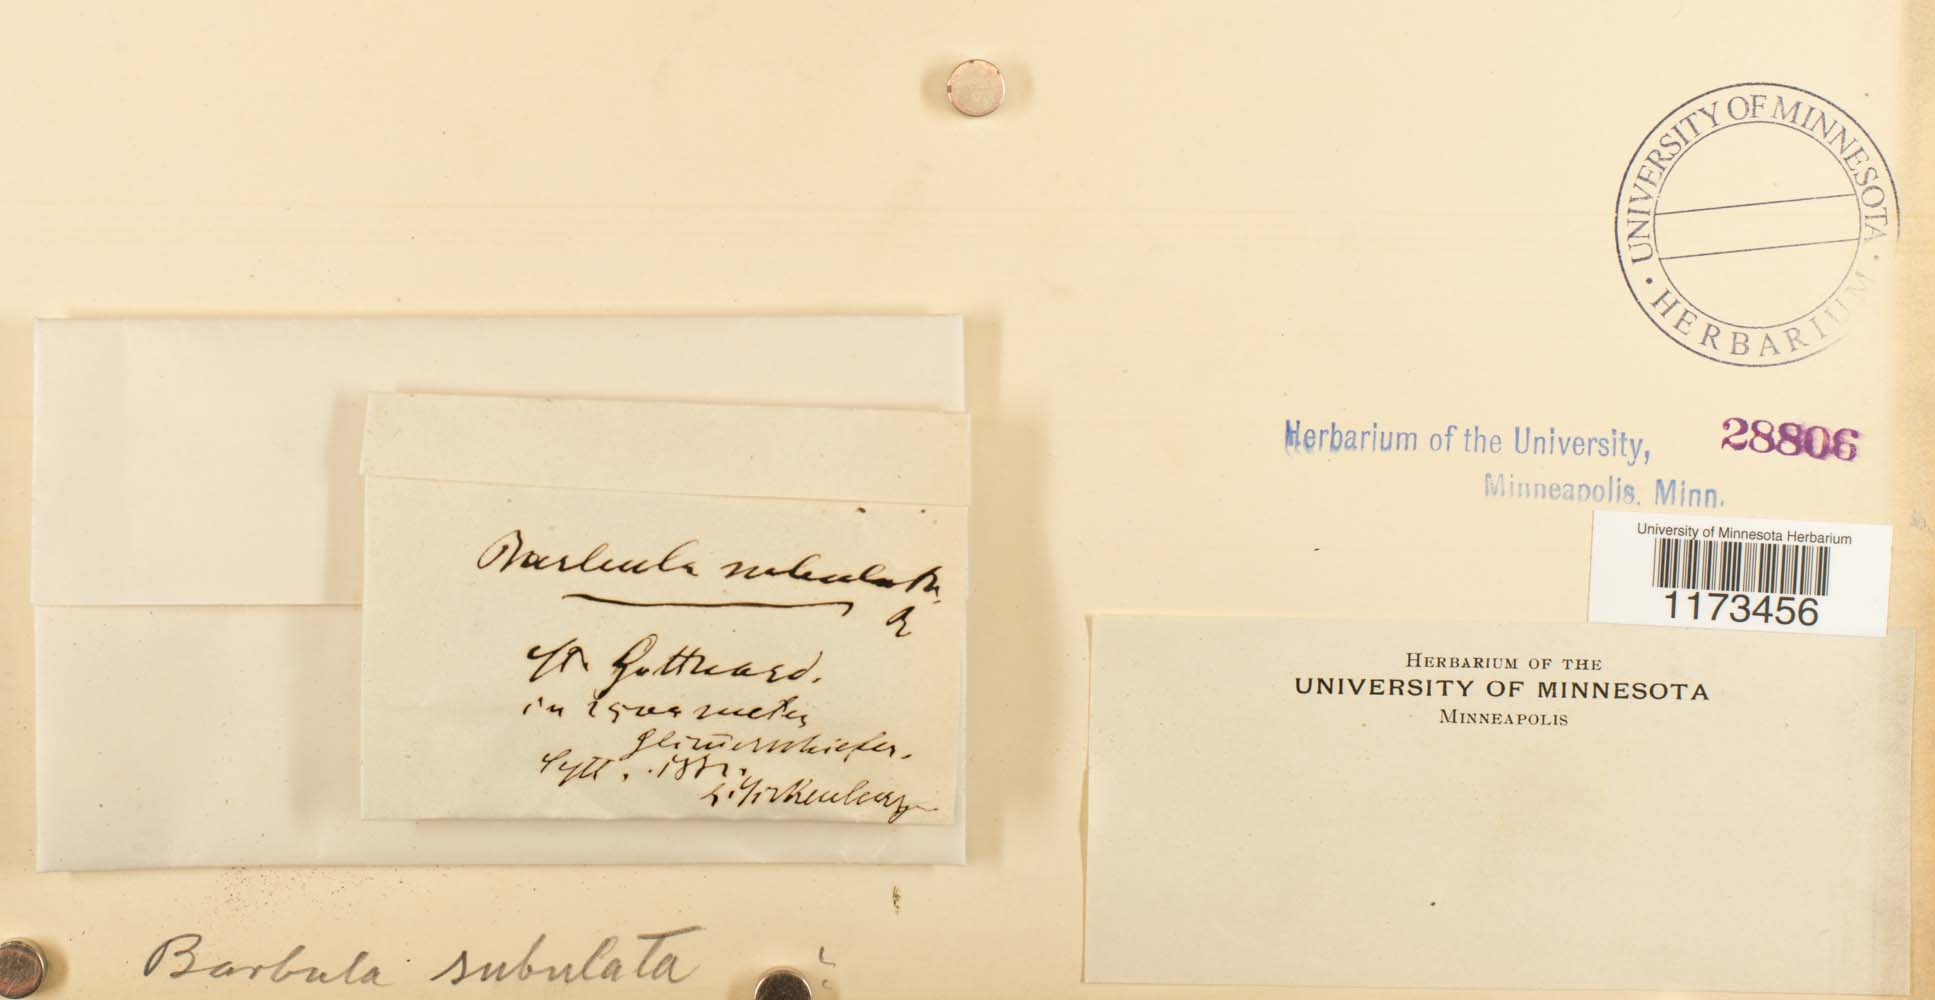 UNIVERSITY OF MINNESOTA
HERBARIUM
Herbarium of the University, 28806
Minneapolis, Minn.
University of Minnesota Herbarium
1173456
HERBARIUM OF THE
UNIVERSITY OF MINNESOTA
MINNEAPOLIS
Barbula subulata
St. Gotthard.
in meter
Glimerschiefer.
Barbula subulata